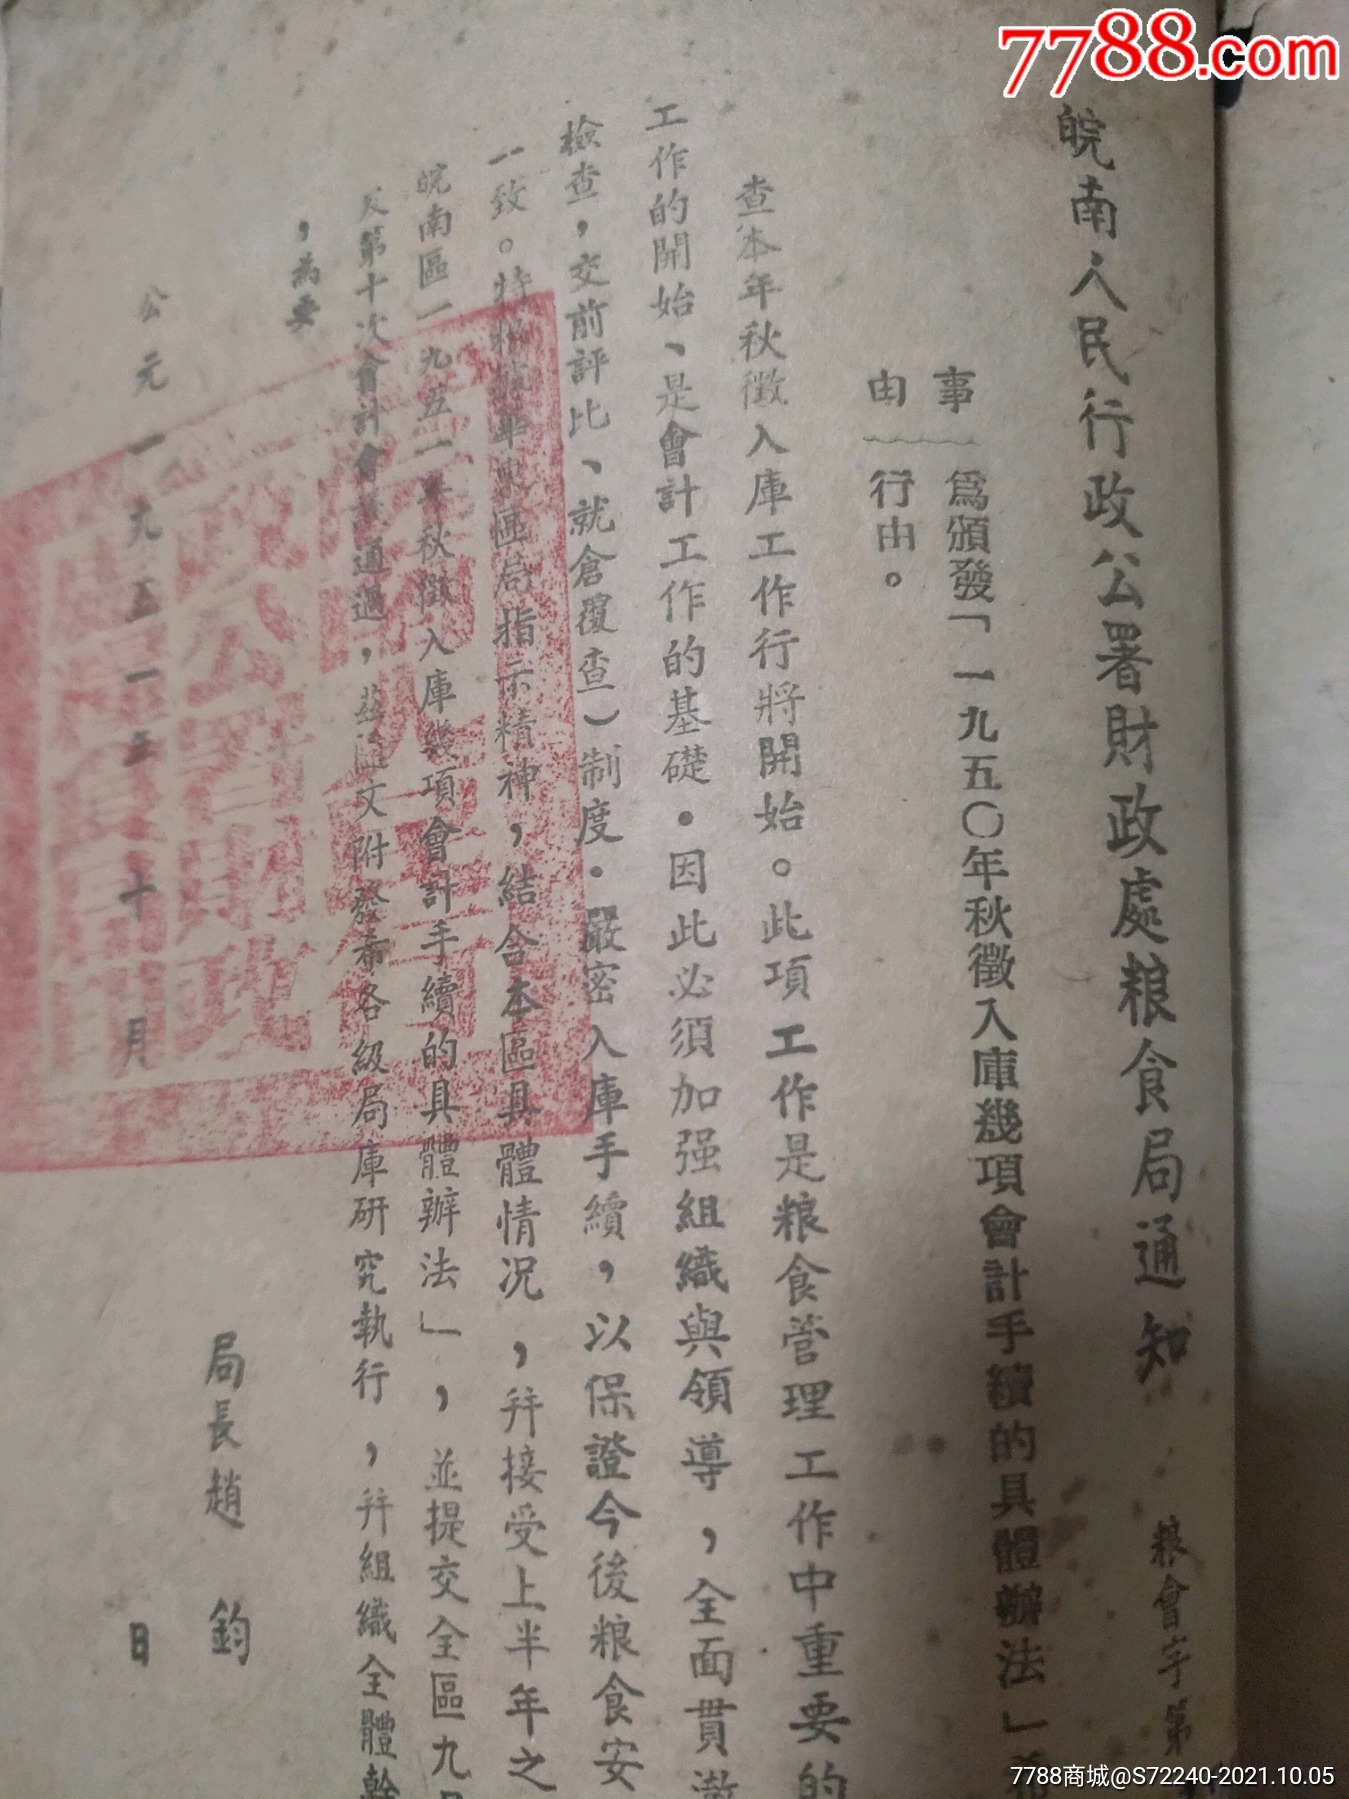 7788.com
皖南人民行政公署財政處粮食局通知
粮會字第
事由
為頒發「一九五〇年秋徵入庫幾項會計手續的具體辦法」
行由。
查本年秋徵入庫工作行將開始。此項工作是粮食管理工作中重要的
工作的開始、是會計工作的基礎.因此必須加强組織與領導，全面貫澈
檢查，交前評比、就倉覆查）制度.嚴密入庫手續，以保證今後粮食安
一致。特根據華東區局指示精神，結合本區具體情況，并接受上半年之
皖南區一九五一年秋徵入庫幾項會計手續的具體辦法」，並提交全區九月
及第十次會計會議通過，茲隨文附發希各級局庫研究執行，并組織全體幹
，為要
局長趙鈞
公元一九五一年十月 日
7788商城@S72240-2021.10.05